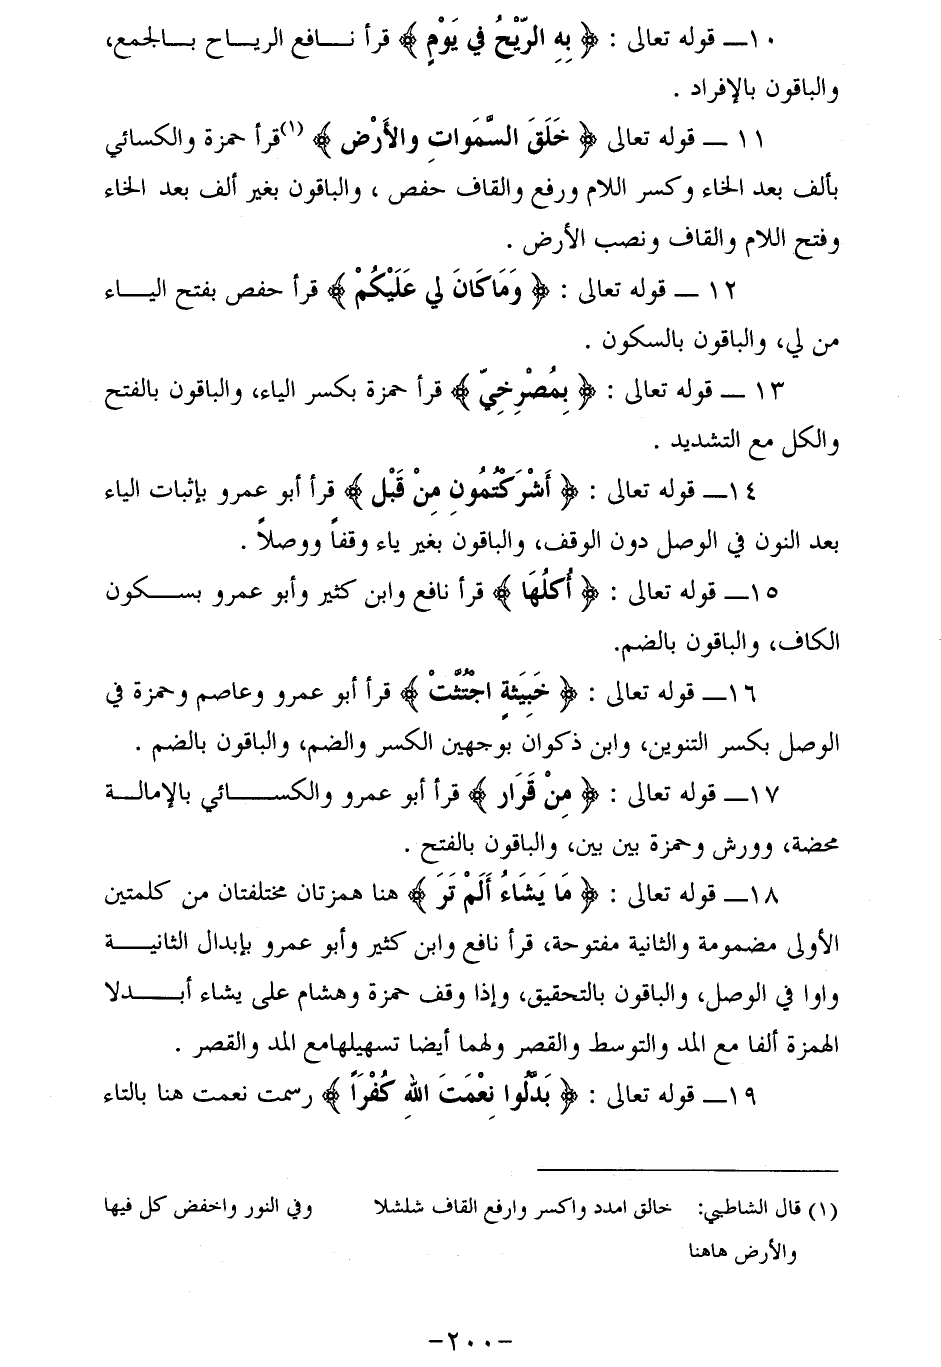 ١٠ــ قوله تعالى : ﴿ بِهِ الرِّيْحُ فِي يَوْمٍ ﴾ قرأ نــافع الريــاح بــالجمع،
والباقون بالإفراد .
١١ ــ قوله تعالى ﴿ خَلَقَ السَّمَوات والأَرْض ﴾ (١)قرأ حمزة والكسائي
بألف بعد الخاء وكسر اللام ورفع والقاف حفص ، والباقون بغير ألف بعد الخاء
وفتح اللام والقاف ونصب الأرض .
١٢ ــ قوله تعالى : ﴿ وَمَاكَانَ لِي عَلَيْكُمْ ﴾ قرأ حفص بفتح اليــاء
من لي، والباقون بالسكون .
١٣ ــ قوله تعالى : ﴿ بِمُصْرِخِيّ ﴾ قرأ حمزة بكسر الياء، والباقون بالفتح
والكل مع التشديد .
١٤ــ قوله تعالى : ﴿ أَشْرَكْتُمُونِ مِنْ قَبْل ﴾ قرأ أبو عمرو بإثبات الياء
بعد النون في الوصل دون الوقف، والباقون بغير ياء وقفاً ووصلاً .
١٥ــ قوله تعالى : ﴿ أُكلُهَا ﴾ قرأ نافع وابن كثير وأبو عمرو بســكون
الكاف، والباقون بالضم.
١٦ــ قوله تعالى : ﴿ خَبِيَثةٍ اجْتُثَّتْ ﴾ قرأ أبو عمرو وعاصم وحمزة في
الوصل بكسر التنوين، وابن ذكوان بوجهين الكسر والضم، والباقون بالضم .
١٧ــ قوله تعالى : ﴿ مِنْ قَرَار ﴾ قرأ أبو عمرو والكســائي بالإمالــة
محضة، وورش وحمزة بين بين، والباقون بالفتح .
١٨ــ قوله تعالى : ﴿ مَا يَشَاءُ أَلَمْ تَرَ ﴾ هنا همزتان مختلفتان من كلمتين
الأولى مضمومة والثانية مفتوحة، قرأ نافع وابن كثير وأبو عمرو بإبدال الثانيــة
واوا في الوصل، والباقون بالتحقيق، وإذا وقف حمزة وهشام على يشاء أبــدلا
الهمزة ألفا مع المد والتوسط والقصر ولهما أيضا تسهيلهامع المد والقصر .
١٩ــ قوله تعالى : ﴿ بَدَّلُوا نِعْمَتَ اللهِ كُفْرَاً ﴾ رسمت نعمت هنا بالتاء
(١) قال الشاطبي: خالق امدد واكسر وارفع القاف شلشلا وفي النور واخفض كل فيها
والأرض هاهنا
-٢٠٠-